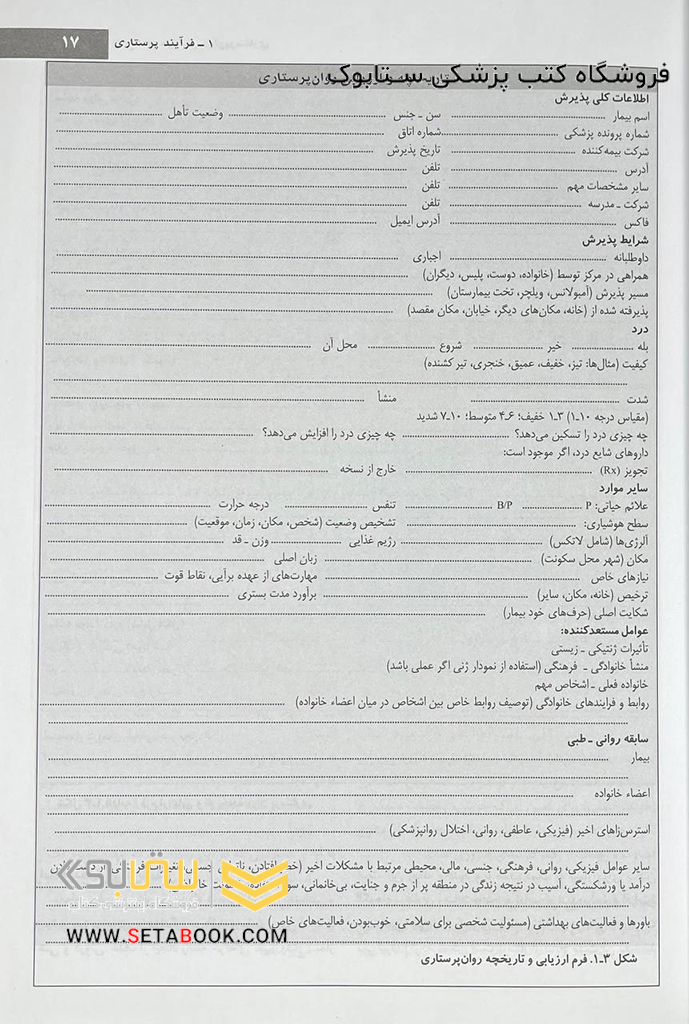 ۱ ـ فرآیند پرستاری ۱۷
فروشگاه کتب پزشکی ستابوک
روان‌پرستاری
اطلاعات کلی پذیرش
اسم بیمار سن ـ جنس وضعیت تأهل
شماره پرونده پزشکی شماره اتاق
شرکت بیمه‌کننده تاریخ پذیرش
آدرس تلفن
سایر مشخصات مهم تلفن
شرکت ـ مدرسه تلفن
فاکس آدرس ایمیل
شرایط پذیرش
داوطلبانه اجباری
همراهی در مرکز توسط (خانواده، دوست، پلیس، دیگران)
مسیر پذیرش (آمبولانس، ویلچر، تخت بیمارستان)
پذیرفته شده از (خانه، مکان‌های دیگر، خیابان، مکان مقصد)
درد
بله خیر شروع محل آن
کیفیت (مثال‌ها: تیز، خفیف، عمیق، خنجری، تیر کشنده)
شدت منشأ
(مقیاس درجه ۱۰ـ۱) ۳ـ۱ خفیف؛ ۶ـ۴ متوسط؛ ۱۰ـ۷ شدید
چه چیزی درد را تسکین می‌دهد؟ چه چیزی درد را افزایش می‌دهد؟
داروهای شایع درد، اگر موجود است:
تجویز (Rx) خارج از نسخه
سایر موارد
علائم حیاتی: P B/P تنفس درجه حرارت
سطح هوشیاری: تشخیص وضعیت (شخص، مکان، زمان، موقعیت)
آلرژی‌ها (شامل لاتکس) رژیم غذایی وزن ـ قد
مکان (شهر محل سکونت) زبان اصلی
نیازهای خاص مهارت‌های از عهده برآیی، نقاط قوت
ترخیص (خانه، مکان، سایر) برآورد مدت بستری
شکایت اصلی (حرف‌های خود بیمار)
عوامل مستعدکننده:
تأثیرات ژنتیکی ـ زیستی
منشأ خانوادگی ـ فرهنگی (استفاده از نمودار ژنی اگر عملی باشد)
خانواده فعلی ـ اشخاص مهم
روابط و فرایندهای خانوادگی (توصیف روابط خاص بین اشخاص در میان اعضاء خانواده)
سابقه روانی ـ طبی
بیمار
اعضاء خانواده
استرس‌زاهای اخیر (فیزیکی، عاطفی، روانی، اختلال روانپزشکی)
سایر عوامل فیزیکی، روانی، فرهنگی، جنسی، مالی، محیطی مرتبط با مشکلات اخیر
درآمد یا ورشکستگی، آسیب در نتیجه زندگی در منطقه پر از جرم و جنایت، بی‌خانمانی،
ستابوک
فروشگاه اینترنتی کتاب
باورها و فعالیت‌های بهداشتی (مسئولیت شخصی برای سلامتی، خوب‌بودن، فعالیت‌های خاص)
WWW.SETABOOK.COM
شکل ۳ـ۱. فرم ارزیابی و تاریخچه روان‌پرستاری